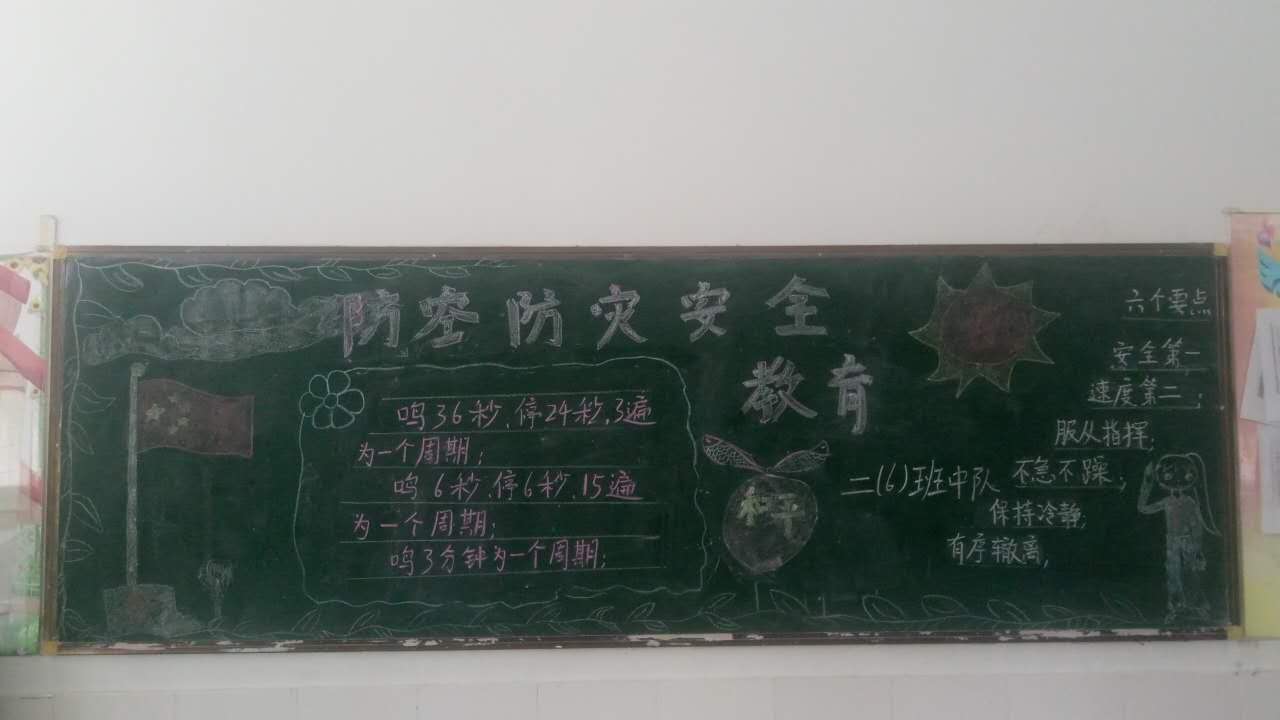 防空防灾安全
教育
鸣36秒、停24秒,3遍
为一个周期;
鸣6秒、停6秒、15遍
为一个周期;
鸣3分钟为一个周期;
和平
二(6)班中队
六个要点
安全第一
速度第二;
服从指挥;
不急不躁;
保持冷静;
有序辙离,